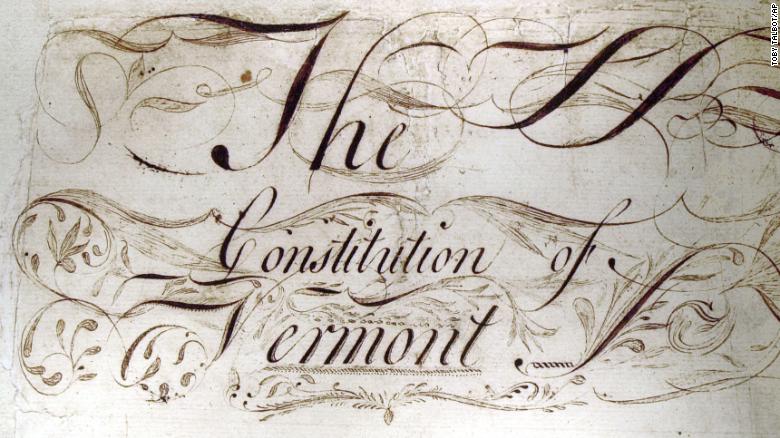 The
Constitution of
Vermont
TOBY TALBOT/AP